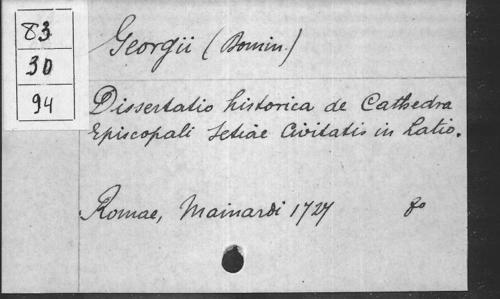 83
30
94
Georgii (Domin.)
Dissertatio historica de Cathedra
Episcopali Setiae Civitatis in Latio.
Romae, Mainardi 1727 fo